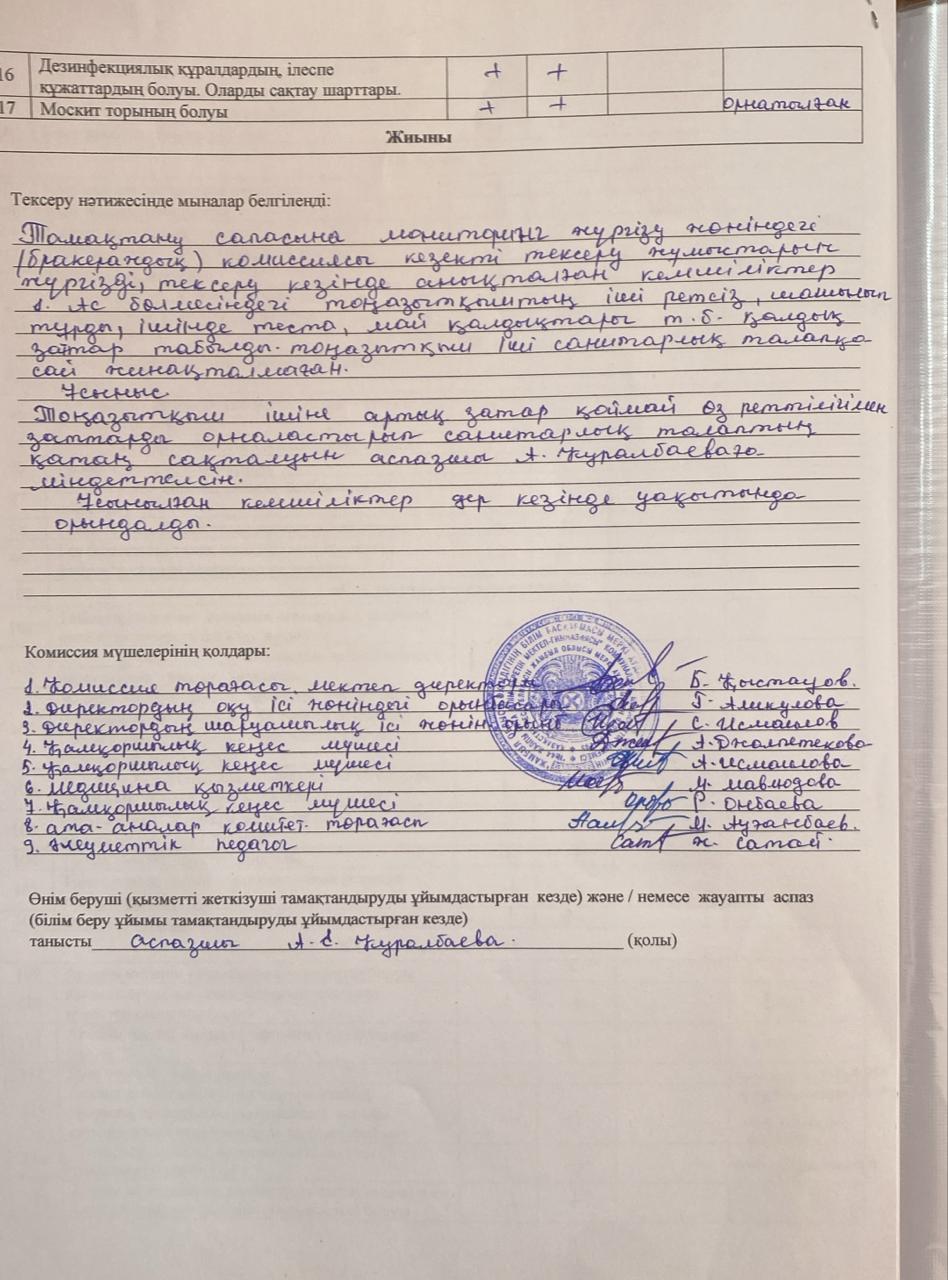 16 Дезинфекциялық құралдардың, ілеспе құжаттардың болуы. Оларды сақтау шарттары. + +
17 Москит торының болуы + + орнатылған
Жиыны
Тексеру нәтижесінде мыналар белгіленді:
Тамақтану сапасына мониторинг жүргізу жөніндегі
(бракераждық) комиссиясы кезекті тексеру жұмыстарын
жүргізді, тексеру кезінде анықталған кемшіліктер
1. Ас бөлмесіндегі тоңазытқыштың іші ретсіз, шашылып
тұрды, ішінде паста, май қалдықтары т.б. қалдық
заттар табылды. тоңазытқыш іші санитарлық талапқа
сай жинақталмаған.
Ұсыныс.
Тоңазытқыш ішіне артық затар қоймай өз реттілігімен
заттарды орналастырып санитарлық талаптың
қатаң сақталуын аспазшы А. Құралбаеваға
міндеттелсін.
Ұсынылған кемшіліктер дер кезінде уақытында
орындалды.
Комиссия мүшелерінің қолдары:
1. Комиссия төрағасы, мектеп директоры Б. Қыстауов.
2. Директордың оқу ісі жөніндегі орынбасары Г. Аликулова
3. Директордың шаруашылық ісі жөнін орынб С. Исмаилов
4. Қамқоршылық кеңес мүшесі А. Джалпетекова
5. Қамқоршылық кеңес мүшесі А. Исмаилова
6. Медицина қызметкері М. Мавлюдова
7. Қамқоршылық кеңес мүшесі Р. Онбаева
8. ата-аналар комитет. төрағасы М. Аужанбаев.
9. Әлеуметтік педагог Ж. Сатай.
Өнім беруші (қызметті жеткізуші тамақтандыруды ұйымдастырған кезде) және / немесе жауапты аспаз
(білім беру ұйымы тамақтандыруды ұйымдастырған кезде)
танысты аспазшы А. С. Құралбаева. (қолы)